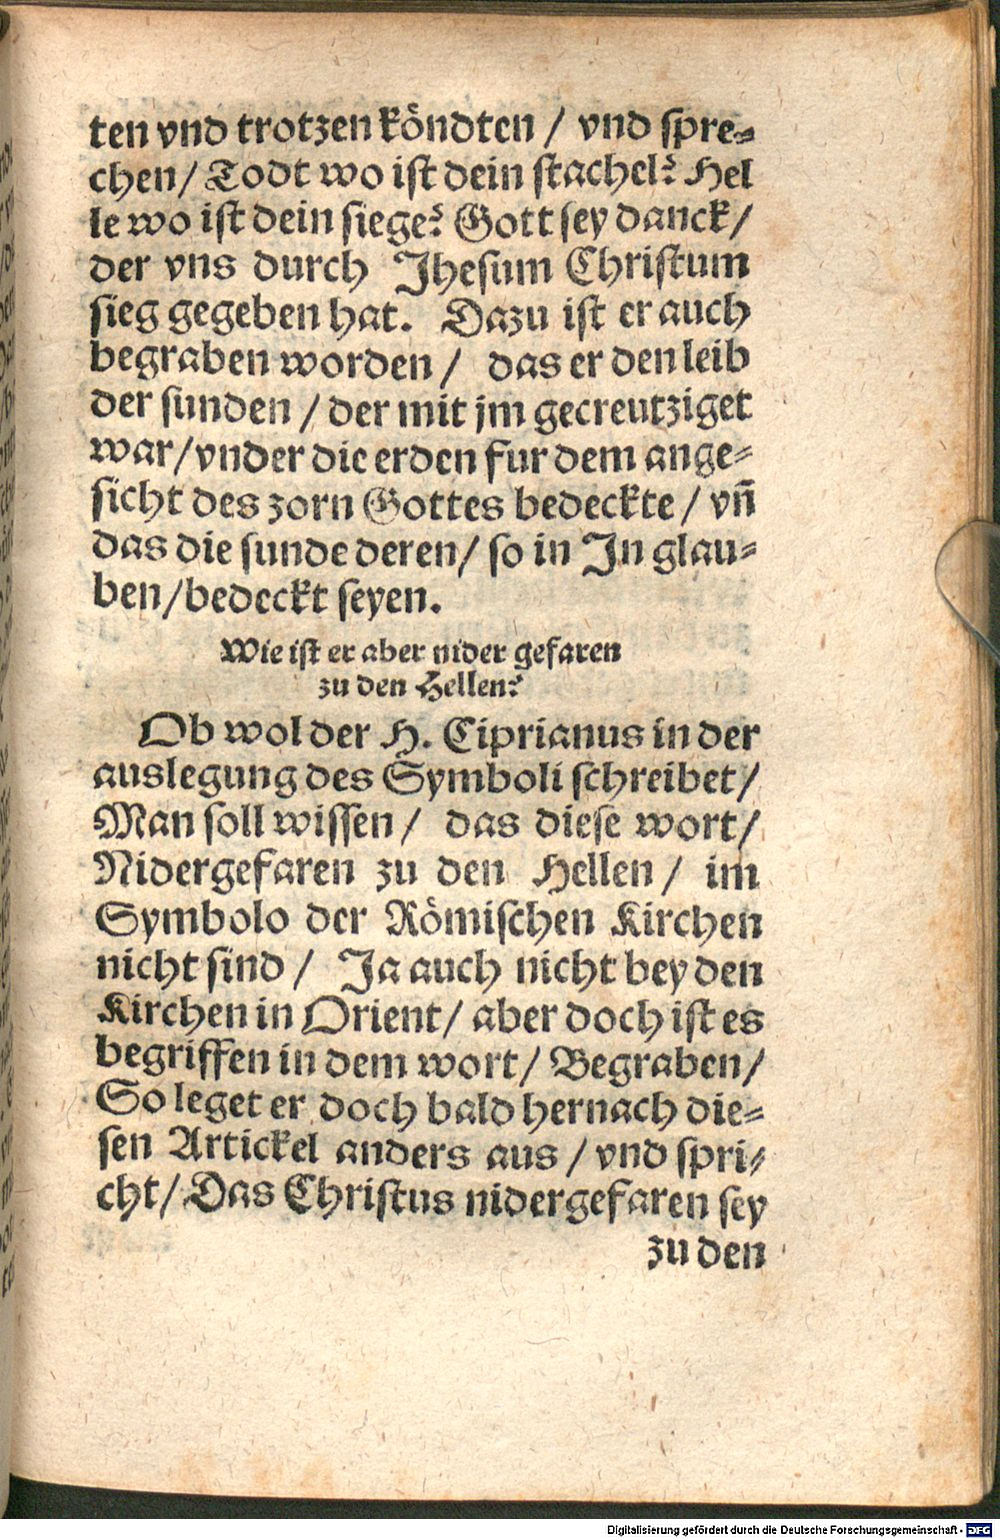 ten vnd trotzen köndten / vnd spre⸗
chen / Todt wo ist dein stachel? Hel
le wo ist dein siege? Gott sey danck /
der vns durch Jhesum Christum
sieg gegeben hat. Dazu ist er auch
begraben worden / das er den leib
der sunden / der mit jm gecreutziget
war / vnder die erden fur dem ange⸗
sicht des zorn Gottes bedeckte / vn̄
das die sunde deren / so in Jn glau⸗
ben / bedeckt seyen.
Wie ist er aber nider gefaren
zu den Hellen?
Ob wol der H. Ciprianus in der
auslegung des Symboli schreibet /
Man soll wissen / das diese wort /
Nidergefaren zu den Hellen / im
Symbolo der Römischen Kirchen
nicht sind / Ja auch nicht bey den
Kirchen in Orient / aber doch ist es
begriffen in dem wort / Begraben /
So leget er doch bald hernach die⸗
sen Artickel anders aus / vnd spri⸗
cht / Das Christus nidergefaren sey
zu den
Digitalisierung gefördert durch die Deutsche Forschungsgemeinschaft - DFG